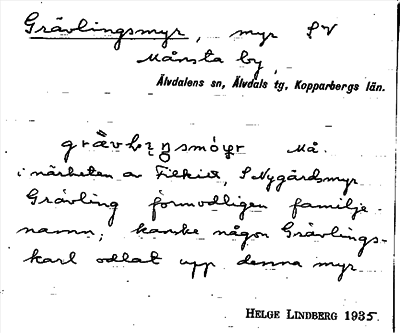 Grävlingsmyr, myr SV
Månsta by,
Älvdalens sn, Älvdals tg, Kopparbergs län.
Må.
i närheten av S Nygårdsmyr
Grävling förmodligen familje-
namn; kanske någon Grävlings-
karl odlat upp denna myr
HELGE LINDBERG 1935.